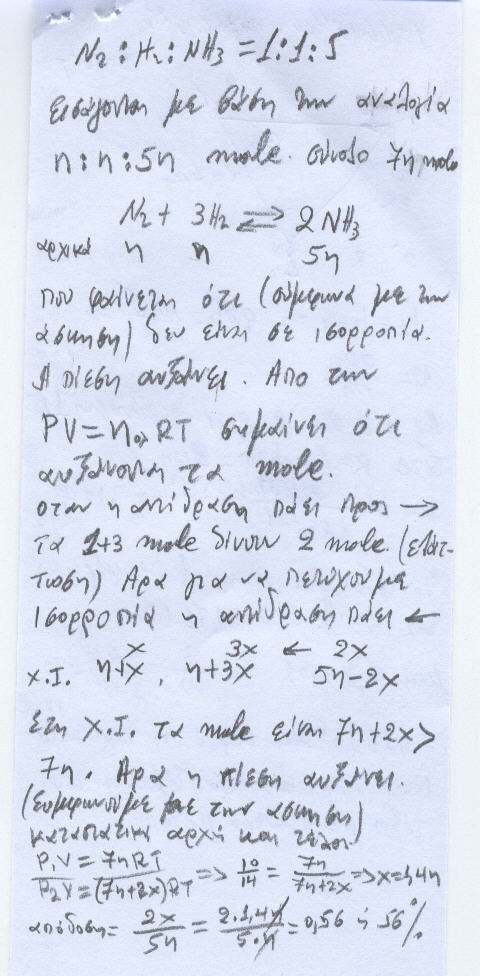 N₂ : H₂ : NH₃ = 1:1:5
εισάγονται με βάση την αναλογία
n : n : 5n mole. σύνολο 7n mole
N₂ + 3H₂ ⇌ 2NH₃
αρχικά n n 5n
που φαίνεται ότι (σύμφωνα με την
άσκηση) δεν είναι σε ισορροπία.
Η πίεση αυξάνει. Απο την
PV = nολ RT σημαίνει ότι
αυξάνονται τα mole.
οταν η αντίδραση πάει προς →
τα 1+3 mole δίνουν 2 mole. (ελάτ-
τωση) Αρα για να πετύχουμε
ισορροπία η αντίδραση πάει ←
x 3x ← 2x
Χ.Ι. n+x, n+3x 5n-2x
Στη Χ.Ι. τα mole είναι 7n+2x>
7n. Αρα η πίεση αυξάνει.
(Συμφωνούμε με την άσκηση)
καταστατική αρχή και τέλος
P₁V = 7nRT / P₂V = (7n+2x)RT => 10/14 = 7n/7n+2x => x=1,4n
απόδοση = 2x/5n = 2·1,4n/5·n = 0,56 ή 56%